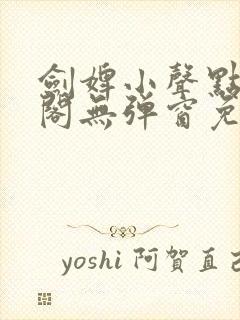 劍婢小聲點
閣無彈窗免
yoshi 阿賀直己